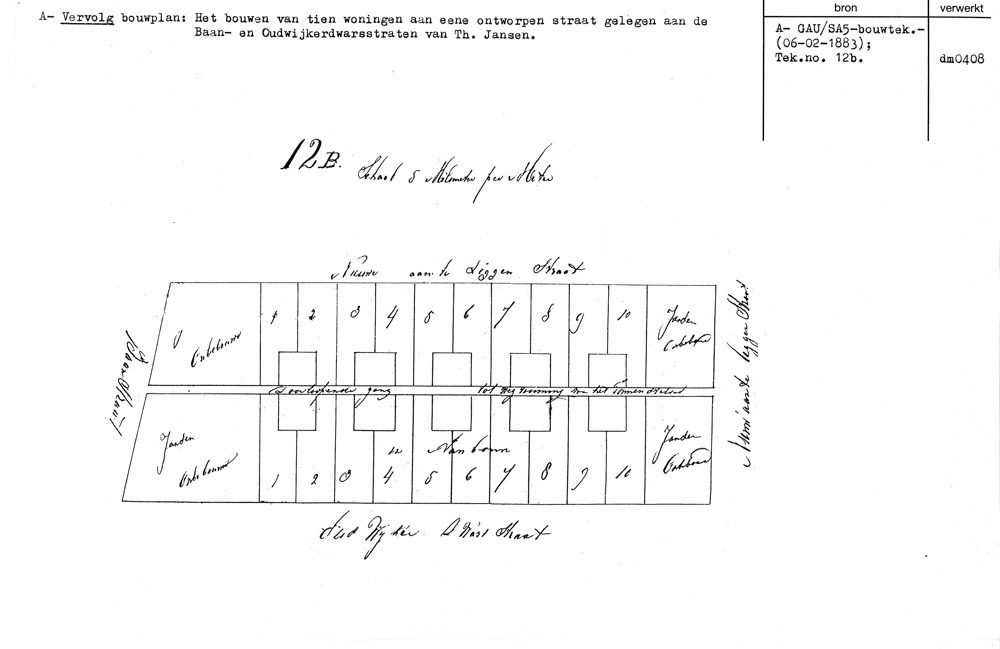 A- Vervolg bouwplan: Het bouwen van tien woningen aan eene ontworpen straat gelegen aan de
Baan- en Oudwijkerdwarsstraten van Th. Jansen.
bron
verwerkt
A- GAU/SA5-bouwtek.-
(06-02-1883);
Tek.no. 12b.
dm0408
12 B.
Schaal 5 Milimeter per Meter
Nieuwe aan te Liggen Straat
Onbebouwd
1 2 3 4 5 6 7 8 9 10
Jansen
Baan Straat
Doorlopende gang tot Wegruiming van het
Jansen
Onbebouwd
in Aanbouw
1 2 3 4 5 6 7 8 9 10
Jansen
aan te leggen Straat
Oud Wijker Dwars Straat